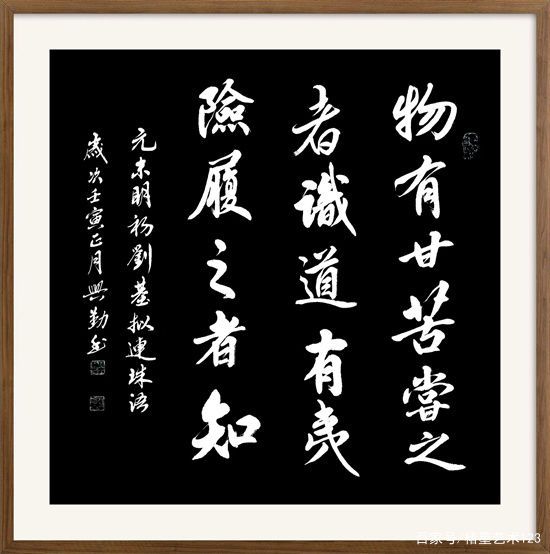 物有甘苦嘗之
者識道有夷
險履之者知
元末明初劉基拟連珠语
歲次壬寅正月興勤书
百家号/楷墨艺术123